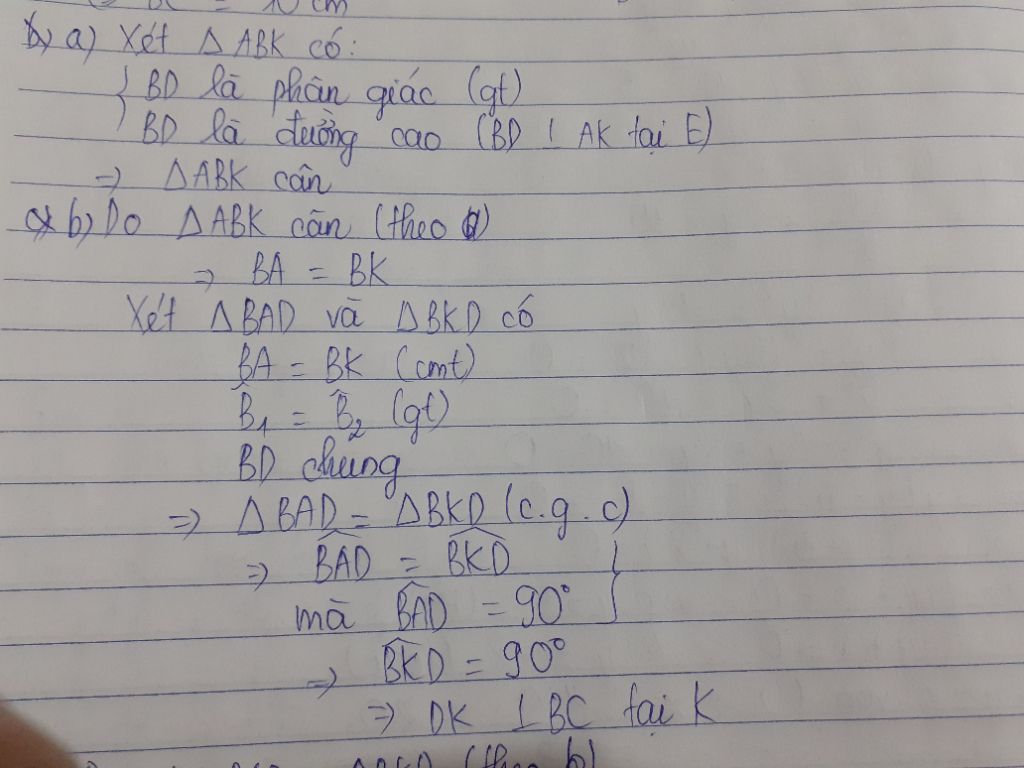 = 10 cm
a) Xét Δ ABK có:
{ BD là phân giác (gt)
BD là đường cao (BD ⊥ AK tại E)
=> ΔABK cân
b) Do ΔABK cân (theo a)
=> BA = BK
Xét ΔBAD và ΔBKD có
BA = BK (cmt)
B̂₁ = B̂₂ (gt)
BD chung
=> ΔBAD = ΔBKD (c.g.c)
=> \widehat{BAD} = \widehat{BKD} }
mà \widehat{BAD} = 90°
=> \widehat{BKD} = 90°
=> DK ⊥ BC tại K
(theo b)